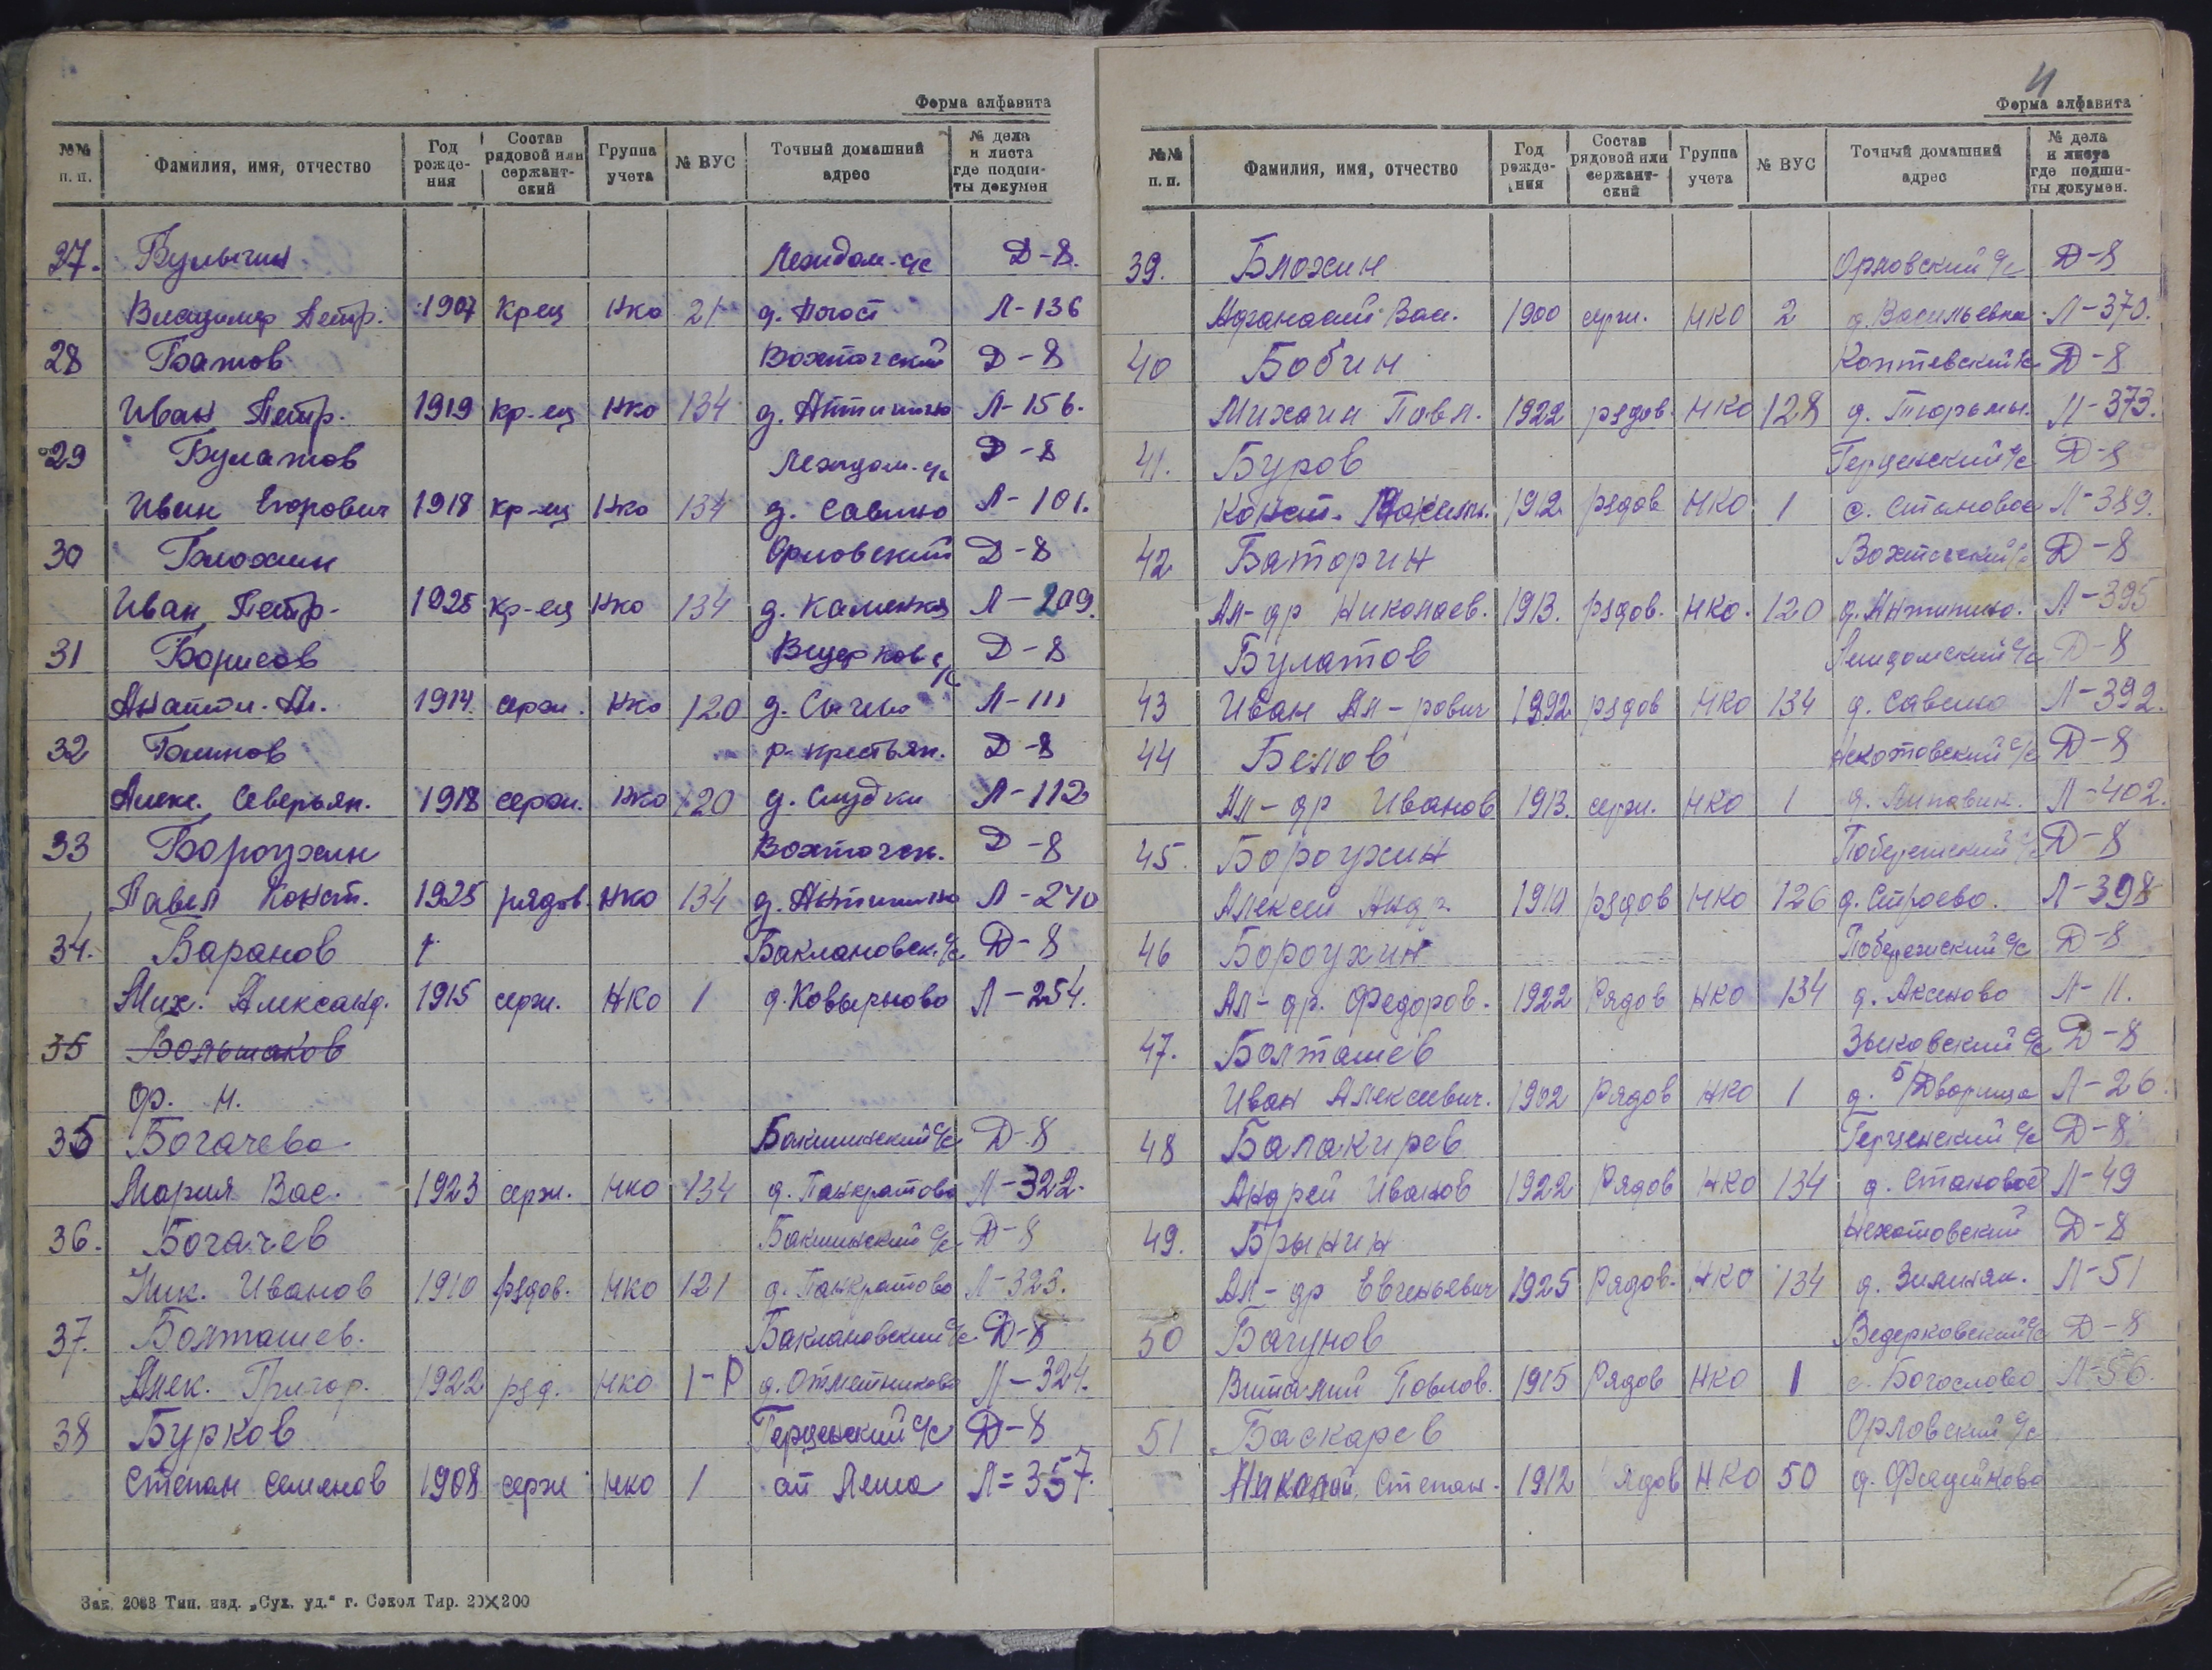 Форма алфавита
№№ п. п. Фамилия, имя, отчество Год рожде-ния Состав рядовой или сержант-ский Группа учета № ВУС Точный домашний адрес № дела и листа где подши-ты докумен
27. Булычин Лежидом. с/с Д-8.
Владимир Петр. 1907 Крец Нко 21 д. Погост Л-136
28 Батов Вохтогский Д-8
Иван Петр. 1919 кр-ец Нко 134 д. Антипино Л-156.
29 Булатов Лежидом. с/с Д-8
Иван Егорович 1918 кр-ец Нко 134 д. Савино Л-101.
30 Блохин Орловский Д-8
Иван Петр. 1925 кр-ец Нко 134 д. Каменка Л-209.
31 Борисов Ведерков с/с Д-8
Анатол. Ал. 1914 серж. Нко 120 д. Л-111
32 Блинов р. крестьян. Д-8
Алек. Северьян. 1918 серж. Нко 120 д. Слудки Л-112
33 Бороухин Вохтоген. Д-8
Павел Конст. 1925 рядов. Нко 134 д. Антипино Л-240
34. Баранов Баклановск. с/с. Д-8
Мих. Александ. 1915 серж. НКО 1 д. Ковырново Л-254.
35 Большаков
Фр. Н.
35 Богачева Бакшинский с/с Д-8
Мария Вас. 1923 серж. нко 134 д. Панкратово Л-322.
36. Богачев Бакшинский с/с Д-8
Ник. Иванов 1910 рядов. НКО 121 д. Панкратово Л-323.
37. Болташев. Баклановский с/с Д-8
Алек. Григор. 1922 ряд. НКО 1-Р д. Отметниково Л-324.
38 Бурков Герценский с/с Д-8
Степан Семенов 1908 серж НКО 1 ст Лежа Л=357.
Зак. 2088 Тип. изд. „Сух. уд.“ г. Сокол Тир. 20×200
4
Форма алфавита
№№ п. п. Фамилия, имя, отчество Год рожде-ния Состав рядовой или сержант-ский Группа учета № ВУС Точный домашний адрес № дела и листа где подши-ты докумен.
39. Блохин Орловский с/с Д-8
Афанасий Вас. 1900 серж. НКО 2 д. Васильевка Л-370.
40 Бобин Коптевский с/с Д-8
Михаил Павл. 1922 рядов. НКО 128 д. Тюрьмы. Л-373.
41. Буров Герценский с/с Д-8
Конст. 1912. рядов НКО 1 с. Становое Л-389.
42 Баторин Вохтогский с/с Д-8
Ал-др Николаев. 1913. рядов. НКО. 120 д. Антипино. Л-395
Булатов Лежидомский с/с Д-8
43 Иван Ал-рович 1892 рядов НКО 134 д. Савино Л-392.
44 Белов с/с Д-8
Ал-др Иванов 1913. серж. НКО 1 д. Л-402.
45. Бороухин Побережский с/с Д-8
Алексей Андр. рядов НКО 126 д. Строево. Л-398
46 Бороухин Побережский с/с Д-8
Ал-др. Федоров. 1922 Рядов НКО 134 д. Аксеново Л-11.
47. Болташев Зыковский с/с Д-8
Иван Алексевич. 1902 Рядов НКО 1 д. Дворища Л-26.
48 Балакирев Герценский с/с Д-8
Андрей Иванов 1922 Рядов НКО 134 д. Становое Л-49
49. Брынин Нехотовский Д-8
Ал-др Евгеньевич 1925 Рядов. НКО 134 д. Л-51
50 Багунов Ведерковский с/с Д-8
Виталий Павлов. 1915 Рядов НКО 1 с. Богослово Л-56.
51 Баскарев Орловский с/с
Николай Степан. 1912 Рядов НКО 50 д. Фадейково